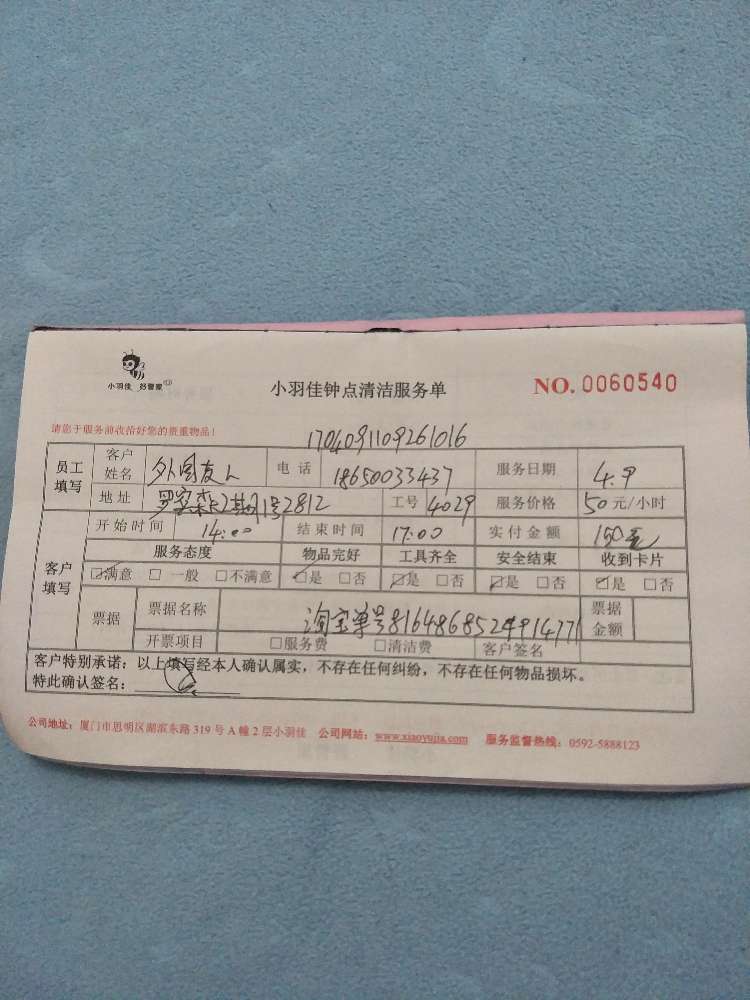 小羽佳 好管家
小羽佳钟点清洁服务单
NO. 0060540
请您于服务前收拾好您的贵重物品!
1704091109261016
员工填写 客户姓名 外国友人 电话 18650033437 服务日期 4.9
地址 2期1号2812 工号 4029 服务价格 50元/小时
客户填写 开始时间 14:00 结束时间 17:00 实付金额 150元
服务态度 物品完好 工具齐全 安全结束 收到卡片
☑满意 □一般 □不满意 ☑是 □否 ☑是 □否 ☑是 □否 ☑是 □否
票据 票据名称 淘宝单号 票据金额
开票项目 □服务费 □清洁费 客户签名
客户特别承诺:以上填写经本人确认属实,不存在任何纠纷,不存在任何物品损坏。
特此确认签名:
公司地址:厦门市思明区湖滨东路319号A幢2层小羽佳 公司网站:www.xiaoyujia.com 服务监督热线:0592-5888123